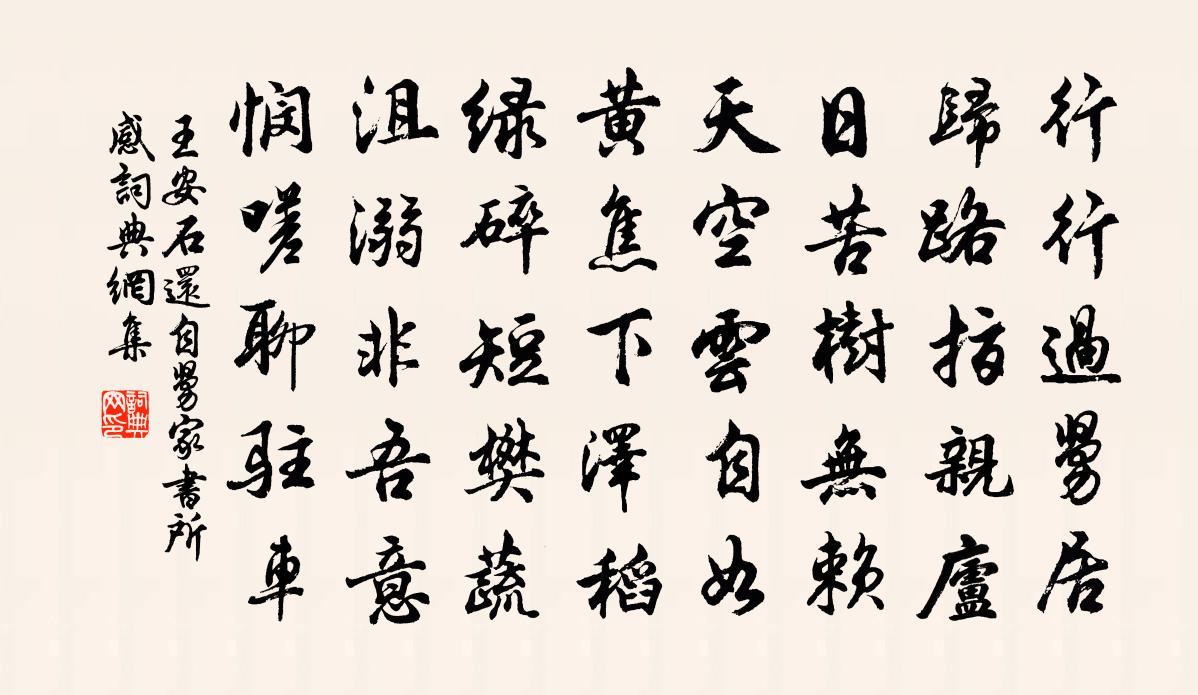 行行過舅居
歸路指親廬
日苦樹無賴
天空雲自如
黄焦下澤稻
緑碎短樊蔬
沮溺非吾意
憫嗟聊駐車
王安石還自舅家書所
感詞典網集
詞典
网印